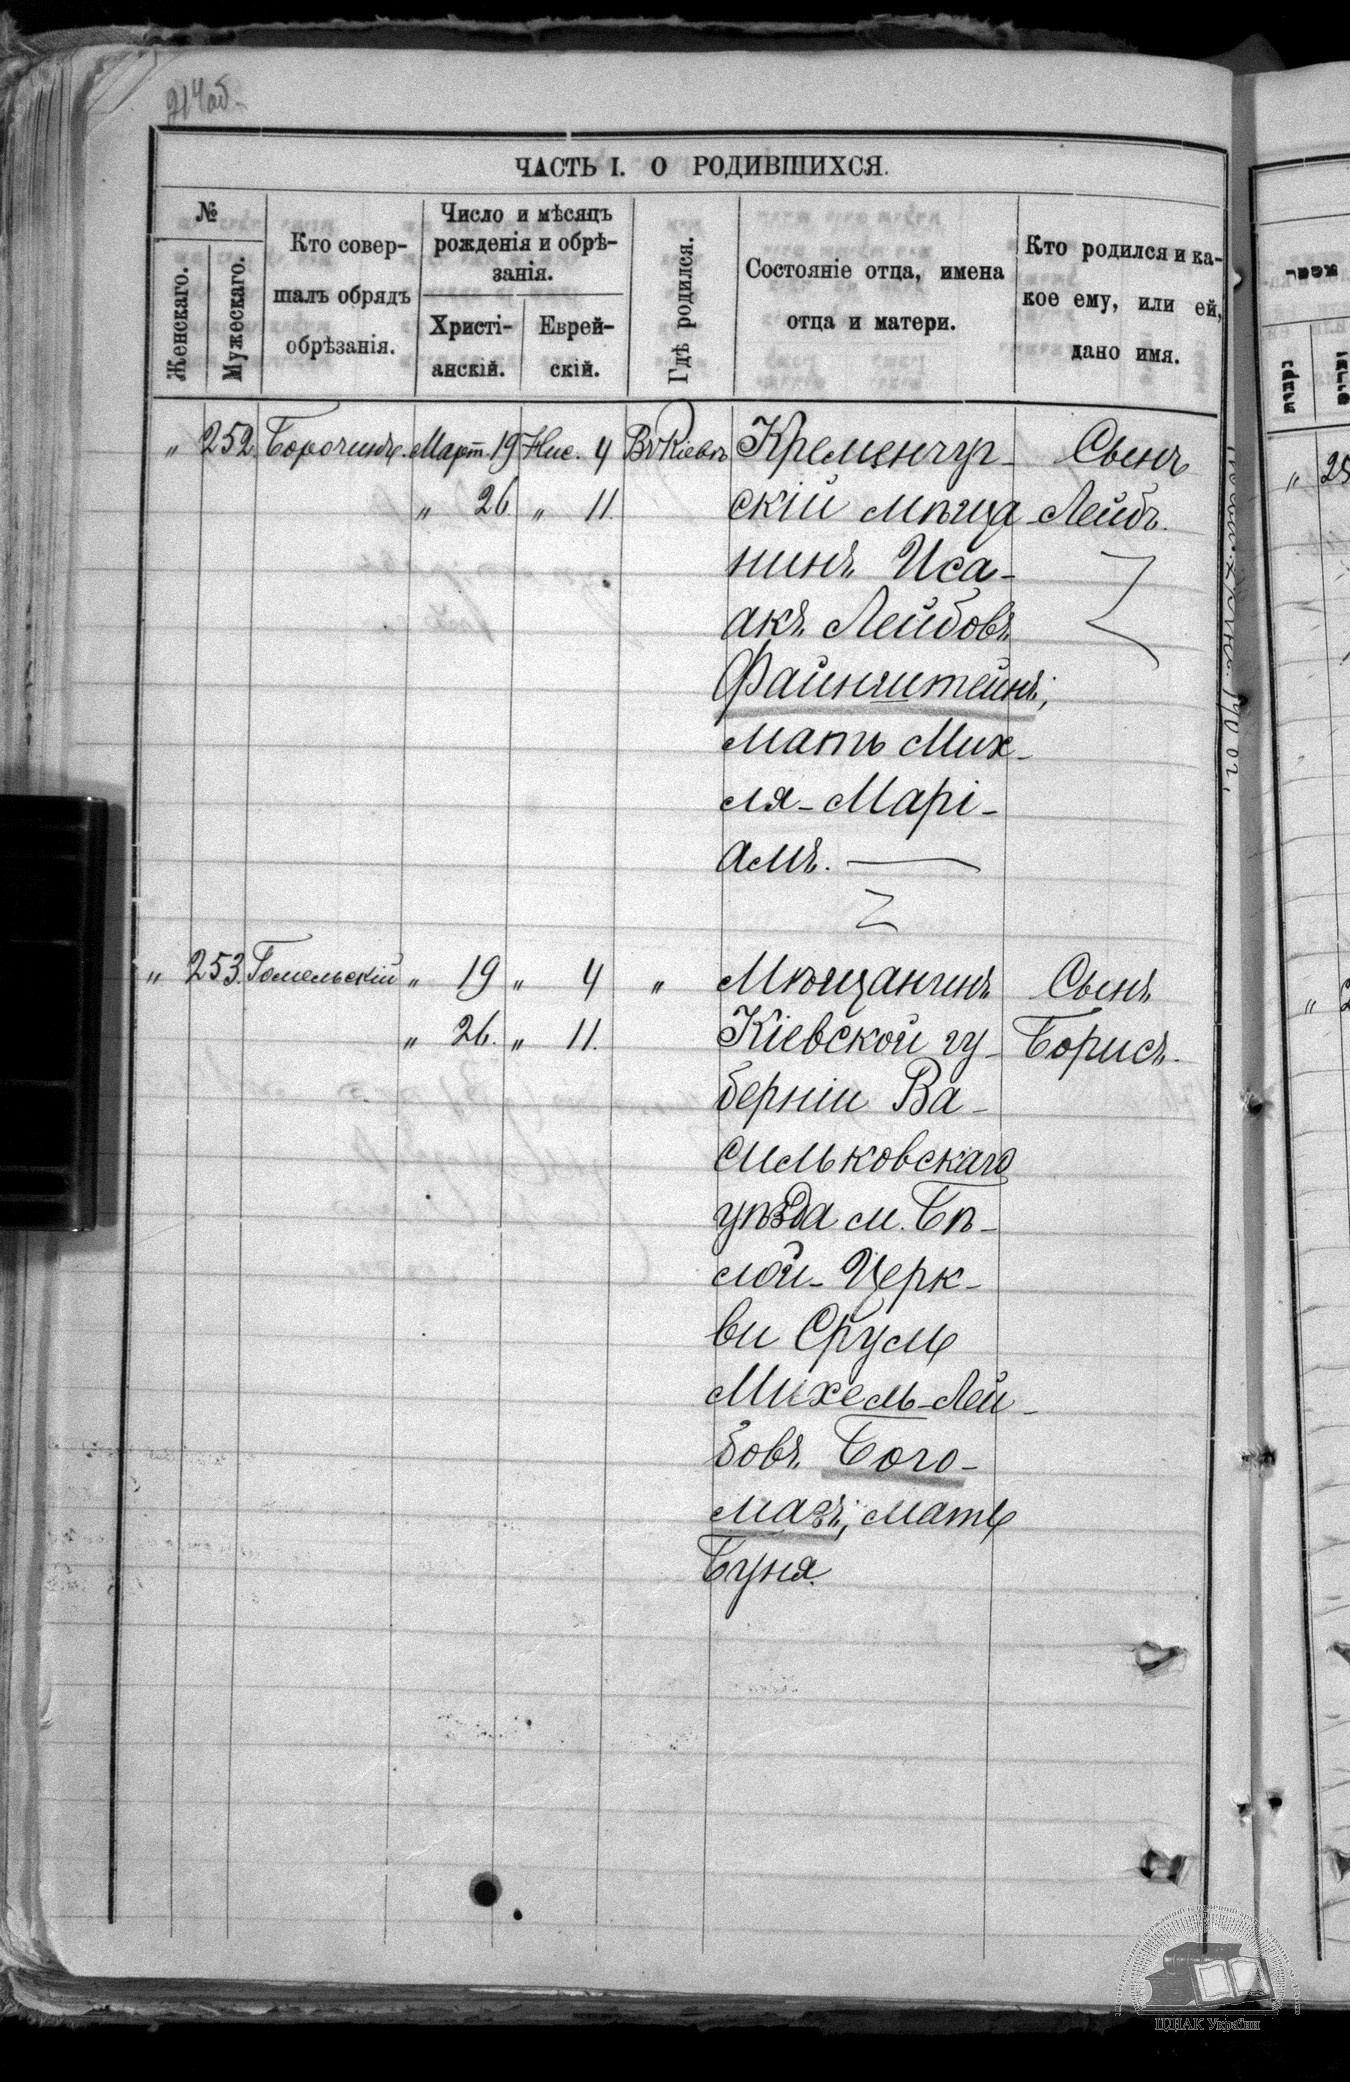 214об.
ЧАСТЬ I. О РОДИВШИХСЯ.
№
Женскаго.
Мужескаго.
Кто совер-
шалъ обрядъ
обрѣзанія.
Число и мѣсяцъ
рожденія и обрѣ-
занія.
Христі-
анскій.
Еврей-
скій.
Гдѣ родился.
Состояніе отца, имена
отца и матери.
Кто родился и ка-
кое ему, или ей,
дано имя.
„ 252. Борочинъ. Март. 19 Нис. 4 Въ Кіевѣ Кременчуг- Сынъ
„ 26. „ 11. скій мѣща Лейбъ.
нинъ Иса-
акъ Лейбовъ
Файнштейнъ;
мать Мих-
ля-Марі-
амъ.
„ 253. Гомельскій „ 19 „ 4 „ Мѣщанинъ Сынъ
„ 26. „ 11. Кіевской гу- Борисъ.
берніи Ва-
сильковскаго
уѣзда м. Бѣ-
лой-Церк-
ви Сруль
Михель-Лей-
бовъ Бого-
мазъ; мать
Буня.
ЦДІАК України